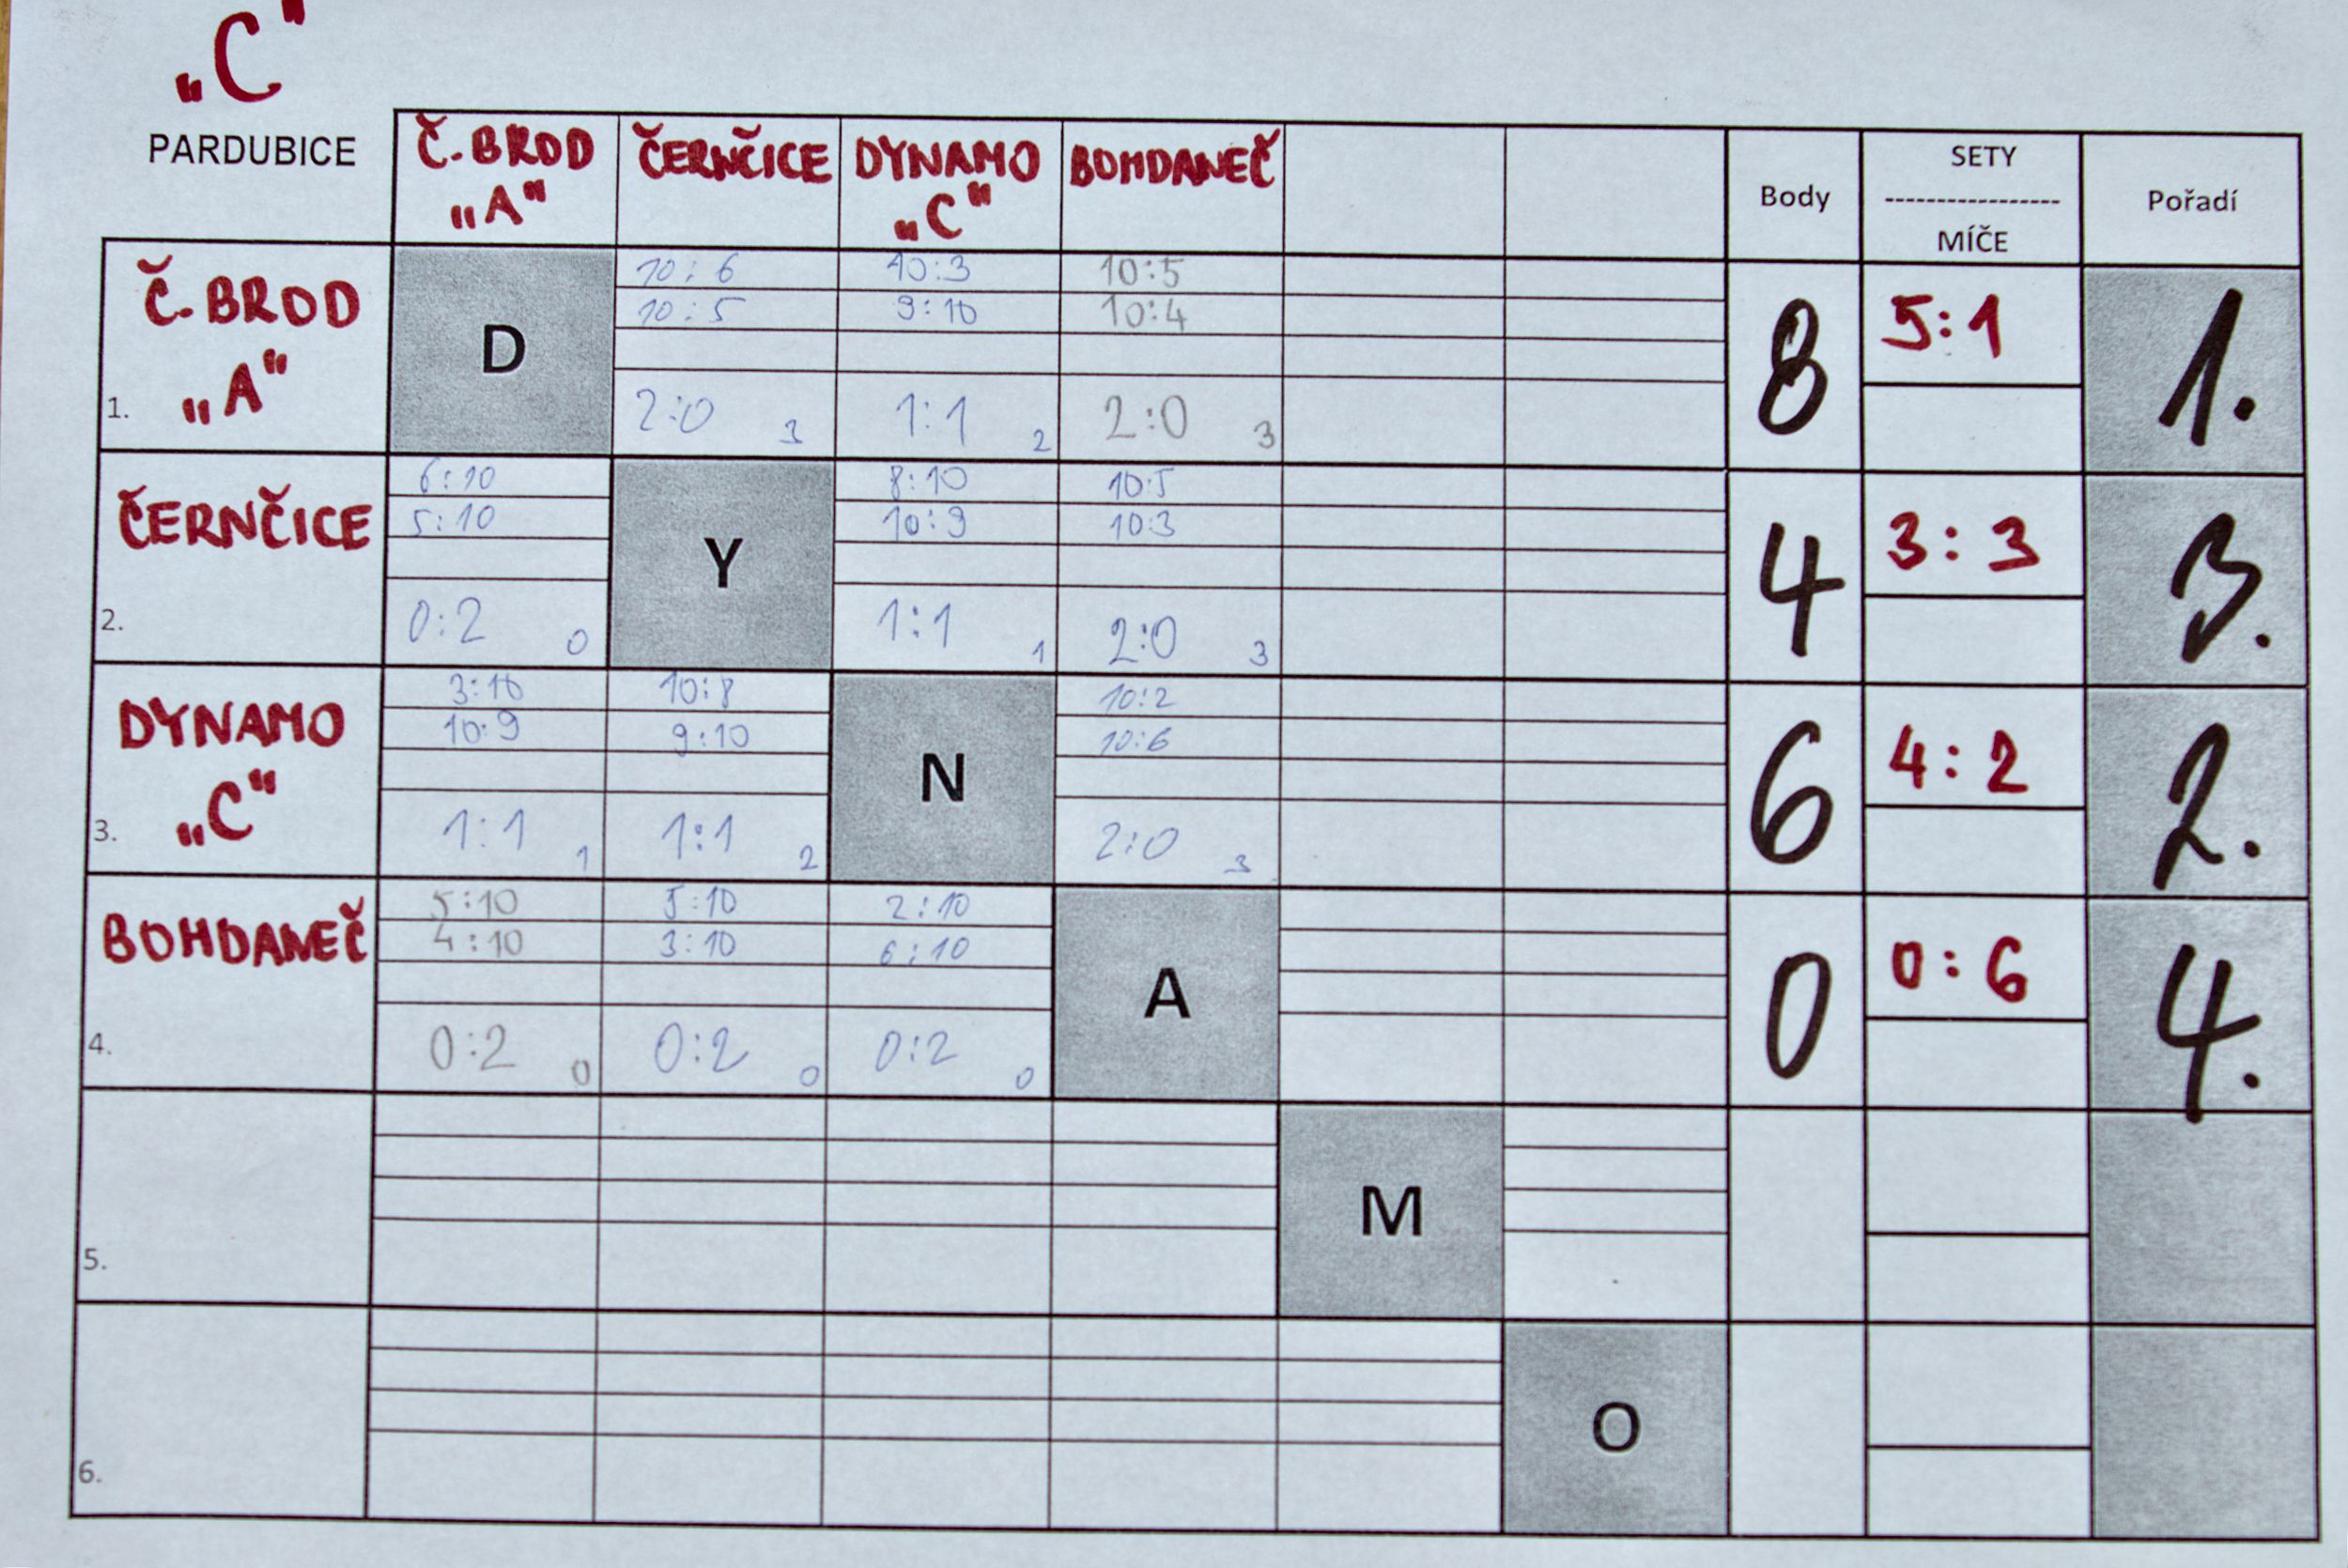 „C"
PARDUBICE
Č. BROD „A"
ČERNČICE
DYNAMO „C"
BOHDANEČ
Body
SETY
-----------------
MÍČE
Pořadí
1.
Č. BROD
„A"
D
10:6
10:5
2:0 3
10:3
9:10
1:1 2
10:5
10:4
2:0 3
8
5:1
1.
2.
ČERNČICE
6:10
5:10
0:2 0
Y
8:10
10:9
1:1 1
10:5
10:3
2:0 3
4
3:3
3.
3.
DYNAMO
„C"
3:10
10:9
1:1 1
10:8
9:10
1:1 2
N
10:2
10:6
2:0 3
6
4:2
2.
4.
BOHDANEČ
5:10
4:10
0:2 0
5:10
3:10
0:2 0
2:10
6:10
0:2 0
A
0
0:6
4.
5.
M
6.
O